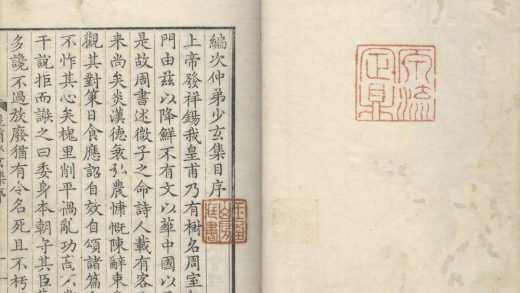 編次仲弟少玄集目序
上帝發祥錫我皇甫乃有樹名周室
門由茲以降鮮不有文以華中國以
是故周書述微子之命詩人載有客
来尚矣炎漢德衰弘農慷慨陳辭東
觀其對策日食應詔自效自頌諸篇
不怍其心矣槐里削平禍亂功高
干說拒而誅之曰委身本朝守其臣
多讒不過放廢猶有令名死且不朽